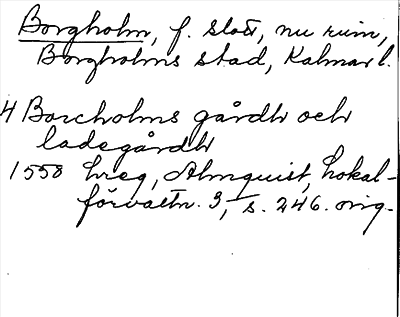 Borgholm, f. slott, nu ruin,
Borgholms stad, Kalmar l.
4 Borcholms gårdh och
ladegårdh
1558 hreg, Almquist, Lokal-
förvaltn. 3, s. 246. orig.